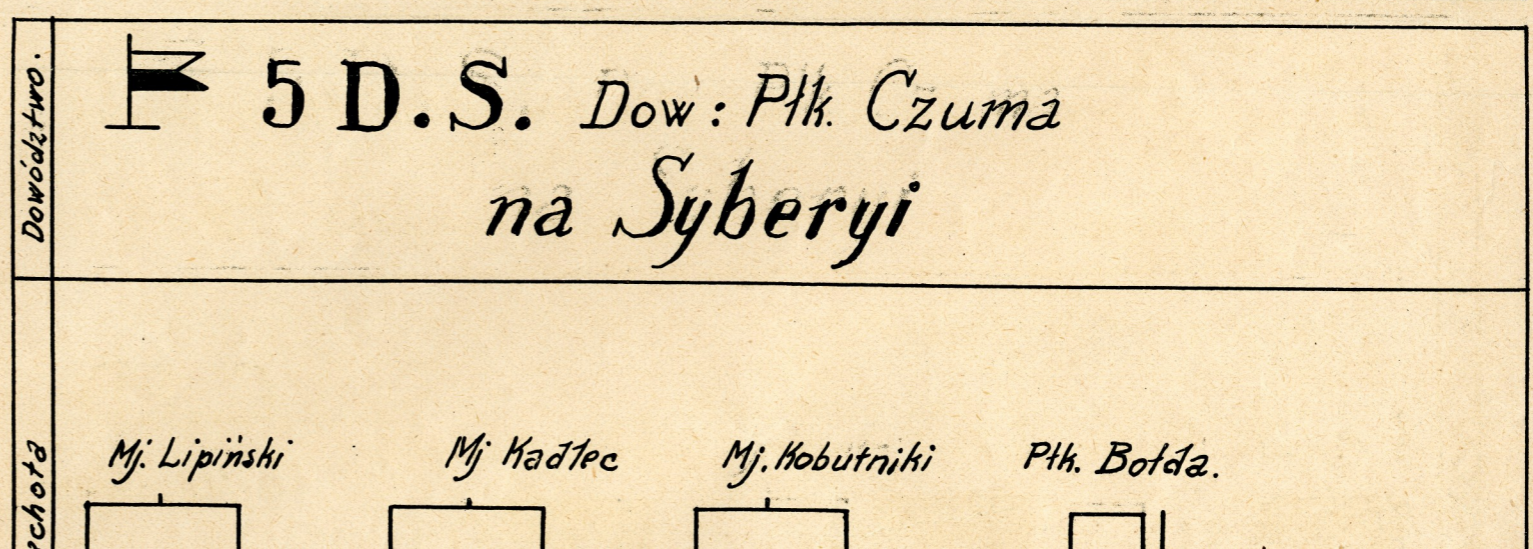 Dowództwo.
5 D.S. Dow: Płk. Czuma
na Syberyi
Mj. Lipiński
Mj Kadlec
Mj. Kobutniki
Płk. Bołda.